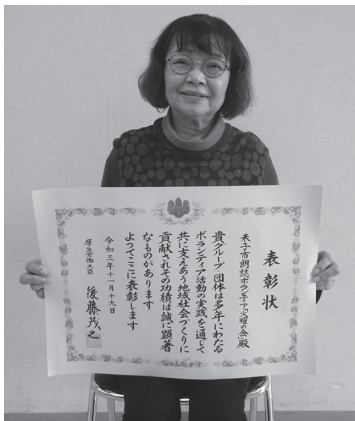 表彰状
米子市朗読ボランティア「火曜の会」殿
貴グループ団体は多年にわたる
ボランティア活動の実践を通して
共に支えあう地域社会づくりに
貢献されその功績は誠に顕著
なものがあります
よってここに表彰します
令和三年十一月十九日
厚生労働大臣 後藤茂之